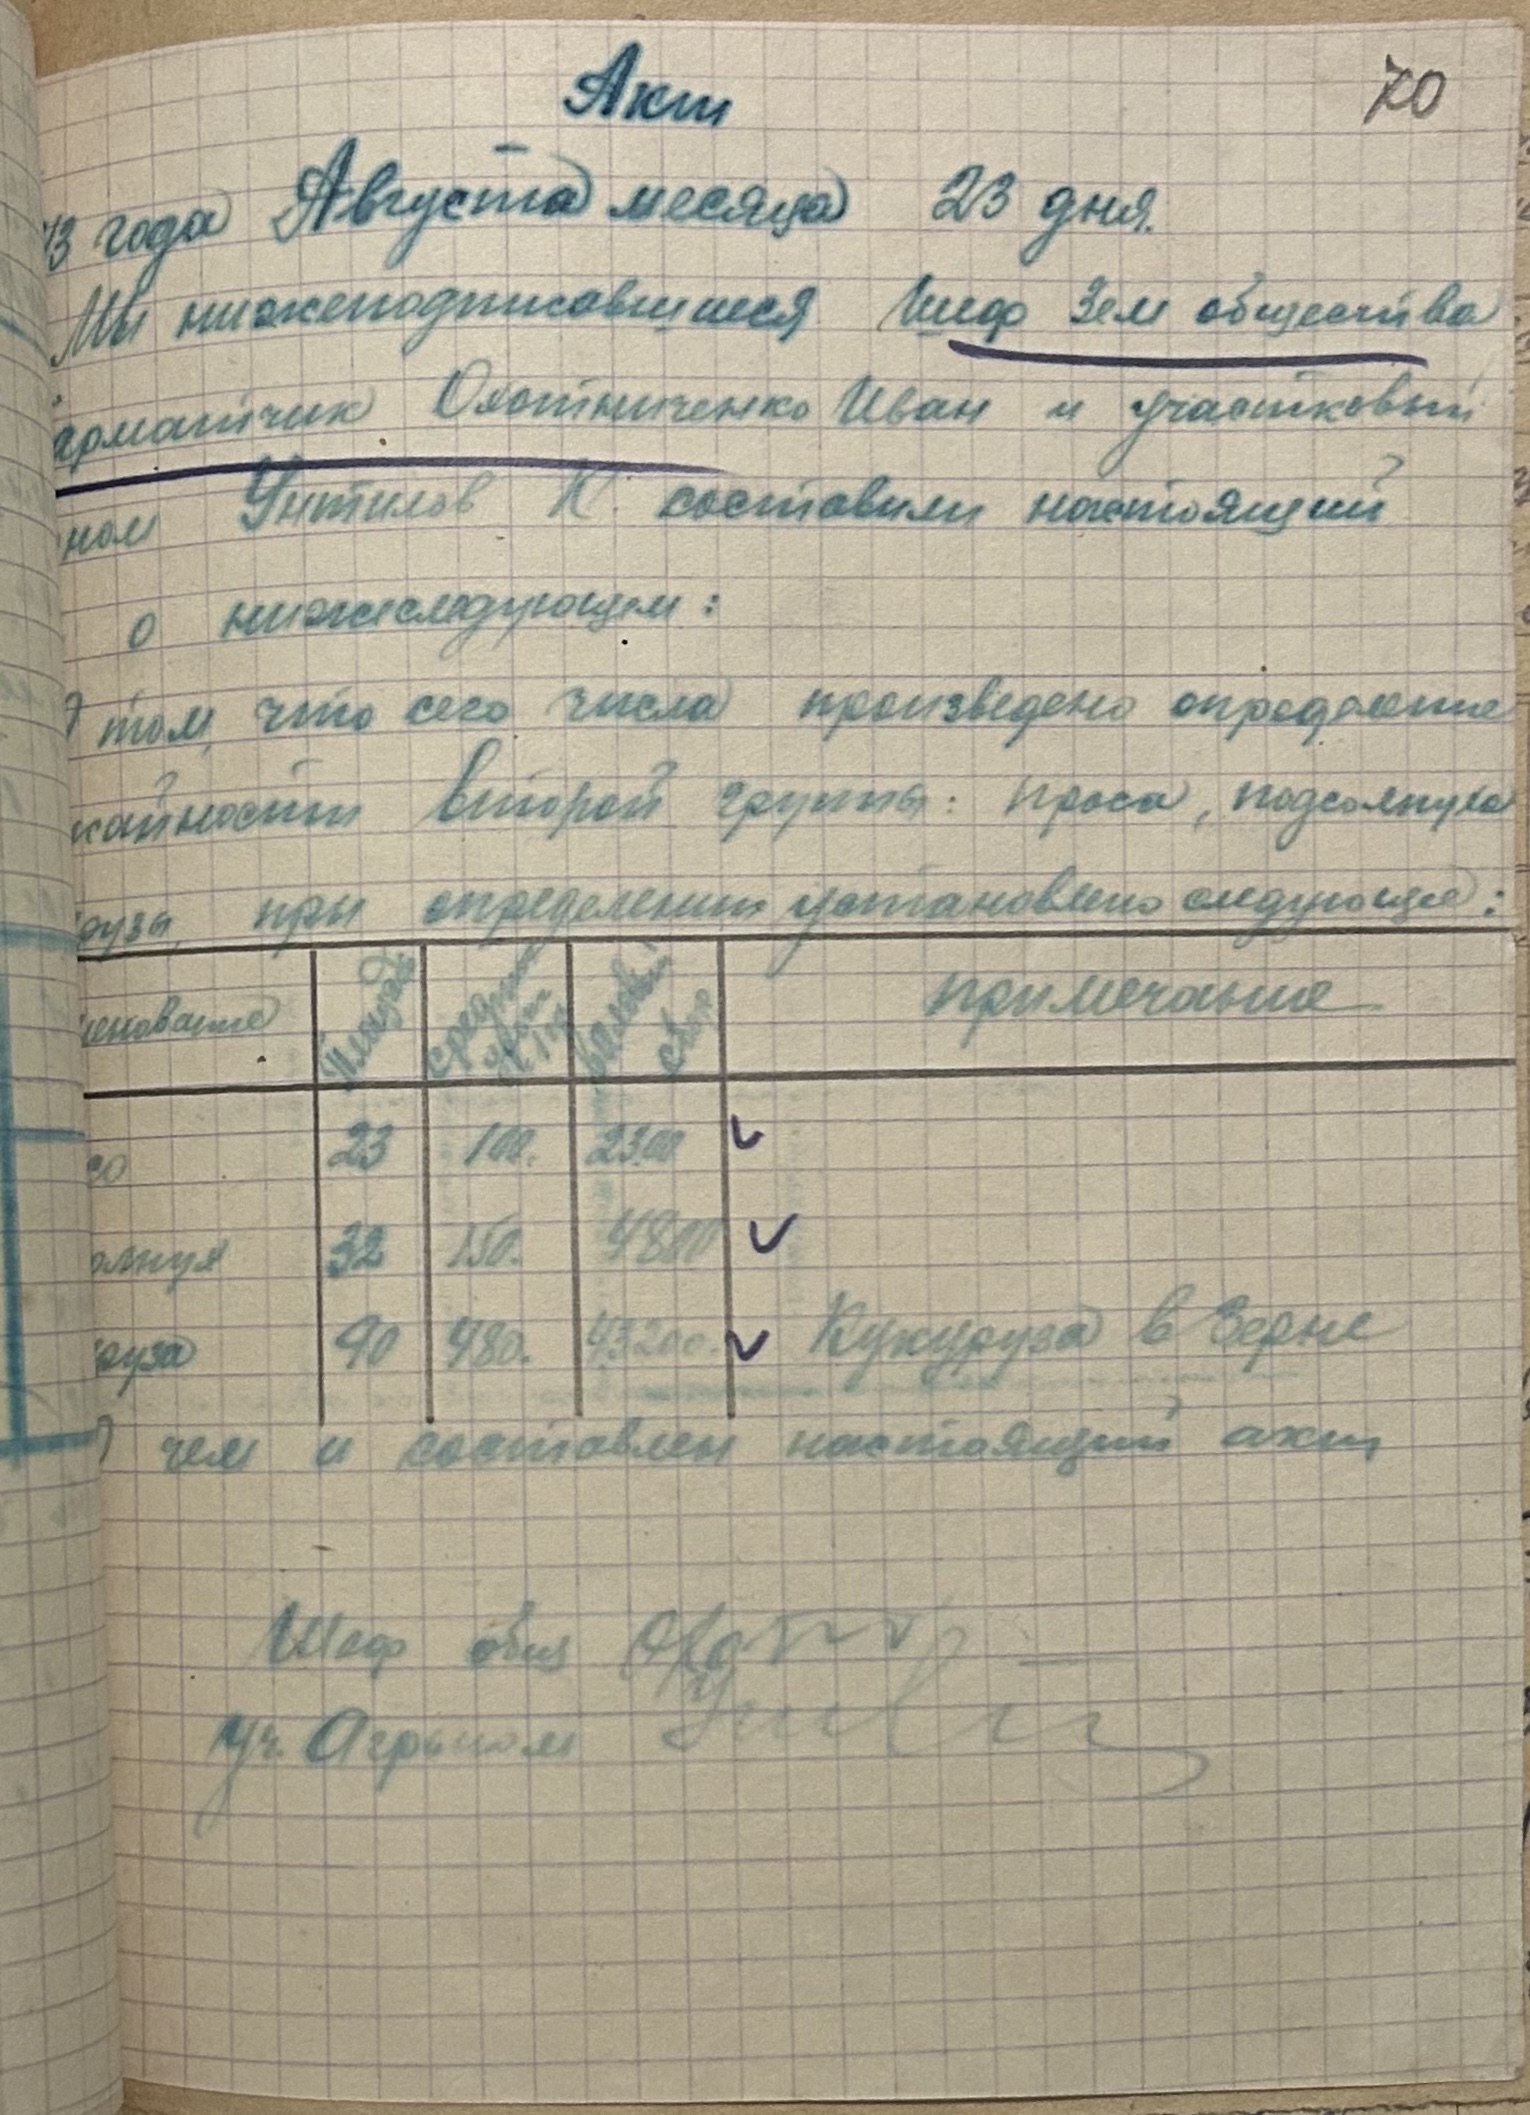 70
Акт
43 года Августа месяца 23 дня.
Мы нижеподписавшиеся Шеф Зем общества
Охотниченко Иван и участковый
ном Унтилов К. составили настоящий
о нижеследующем:
О том, что сего числа произведено определение
жайности второй группы: проса, подсолнуха
рузы, при определении установлено следующее:
менование Площадь средний валовый сбор примечание
со 23 100. 2300
олнух 32 150. 4800
руза 90 480. 43200. Кукуруза в Зерне
О чем и составлен настоящий акт
Шеф общ
уч. Агроном